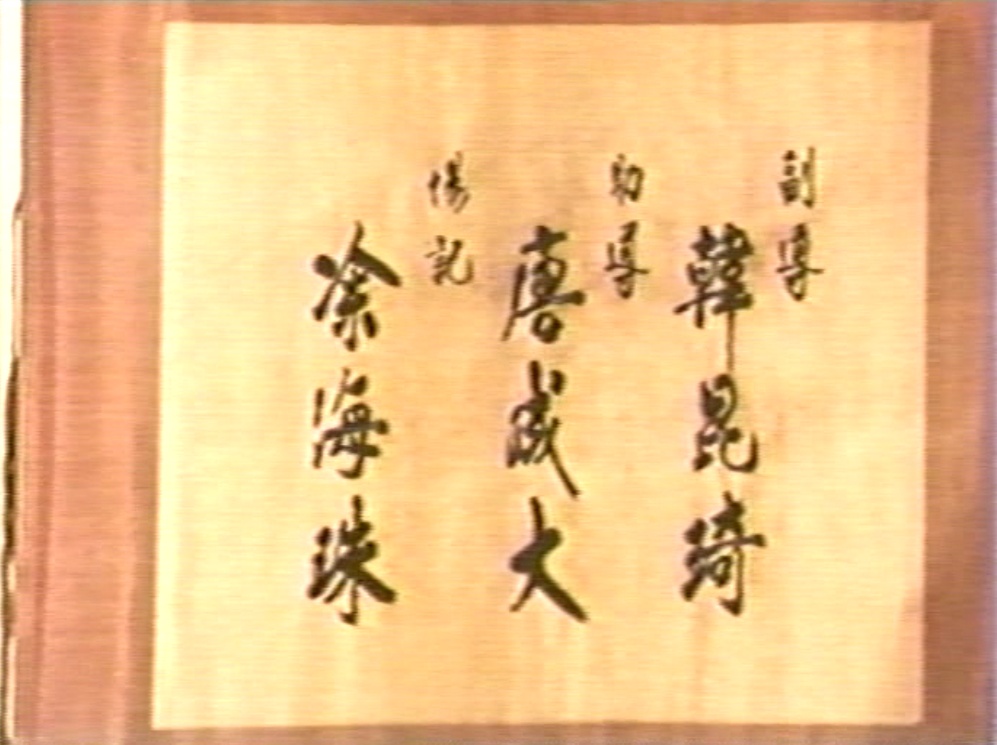 副導
韓昆琦
助導
唐威大
場記
涂海珠